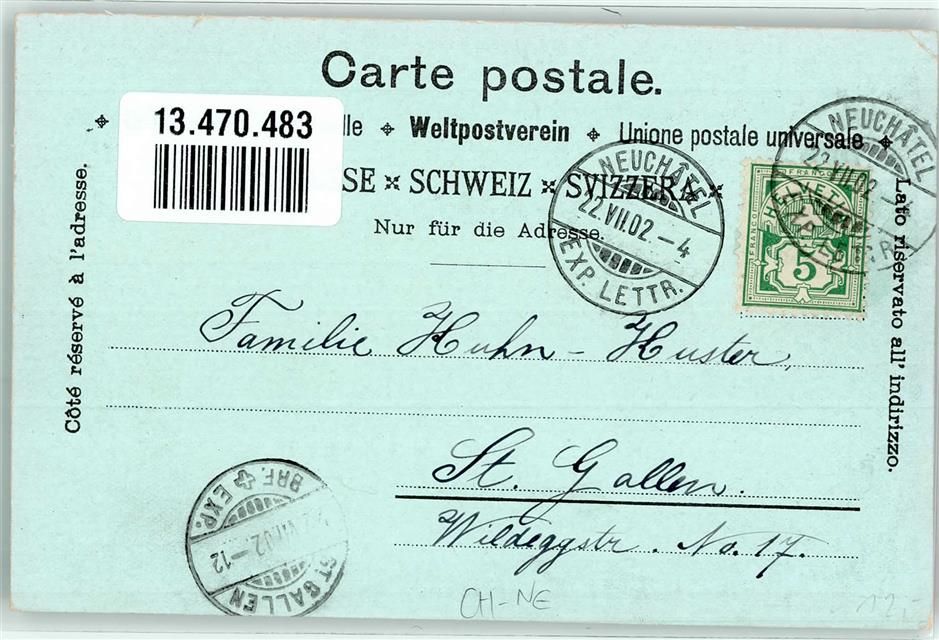 Carte postale.
13.470.483
lle ⌖ Weltpostverein ⌖ Unione postale universale ⌖
SE × SCHWEIZ × SVIZZERA ×
Nur für die Adresse.
Côté réservé à l'adresse.
Lato riservato all' indirizzo.
NEUCHÂTEL
22.VII.02.-4
EXP. LETTR.
NEUCHÂTEL
22.VII.02
FRANCO
HELVETIA
5
Familie Huhn-Huster,
St. Gallen.
Wildeggstr. No. 17.
BRF. EXP.
22.VII.02.-12
ST. GALLEN
CH-NE
12,-